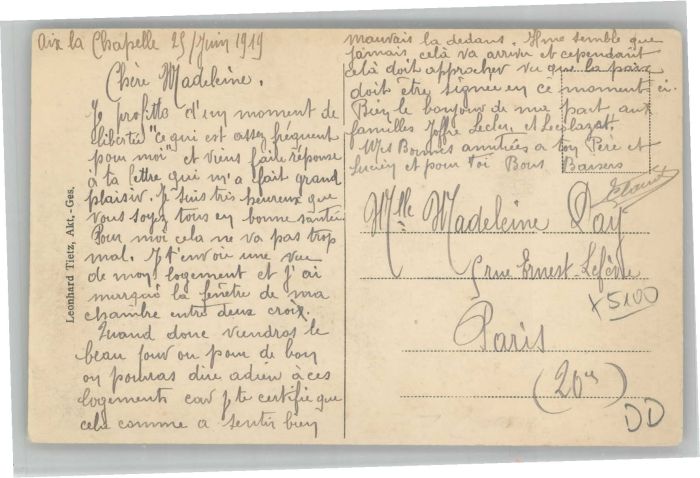 Aix la Chapelle 25/Juin 1919
Chère Madeleine.
Je profitte d'un moment de
liberté "ce qui est assez fréquent
pour moi" et viens faire réponse
à ta lettre qui m'a fait grand
plaisir. Je suis très heureux que
vous soyez tous en bonne santée
Pour moi cela ne va pas trop
mal. Je t'envoie une vue
de mon logement et j'ai
marqué la fenêtre de ma
chambre entre deux croix.
Quand donc viendras le
beau jour ou pour de bon
on pourras dire adieu à ces
logements car je te certifie que
cela comme a sentir bien
mauvais la dedans. Il me semble que
jamais celà va arriver et cependant
celà doit approcher vu que la paix
doit être signée en ce moments ci.
Bien le bonjour de ma part aux
familles Joffre Lecler, et Leplazat.
Mes Bonnes amitiées a ton Père et
Lucien et pour toi Bons Baisers
Mlle Madeleine Day
5 rue Ernest-Lefèvre
Paris
(20e)
x 5100
DD
Leonhard Tietz, Akt.-Ges.